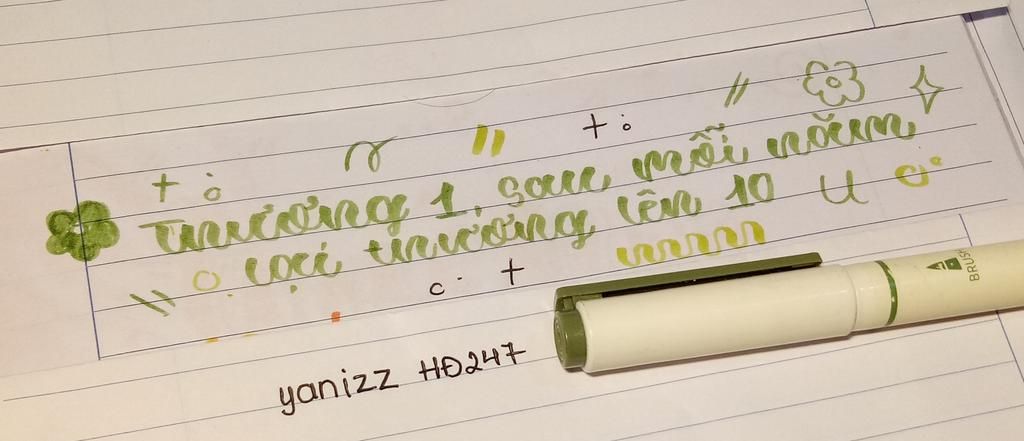 Thương 1, sau mỗi năm
lại thương lên 10
yanizz HĐ247
BRUS